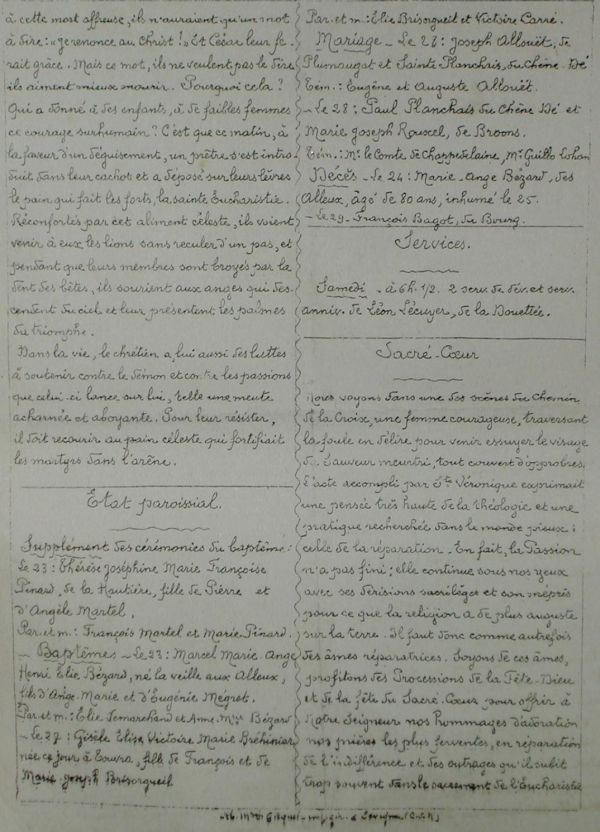 à cette mort affreuse, ils n'auraient qu'un mot
à dire: "Je renonce au Christ!" Et César leur fe-
rait grâce. Mais ce mot, ils ne veulent pas le dire
ils aiment mieux mourir. Pourquoi cela ?
Qui a donné à des enfants, à de faibles femmes
ce courage surhumain ? C'est que ce matin, à
la faveur d'un déguisement, un prêtre s'est intro-
duit dans leur cachot et a déposé sur leurs lèvres
le pain qui fait les forts, la sainte Eucharistie.
Réconfortés par cet aliment céleste, ils voient
venir à eux les lions sans reculer d'un pas, et
pendant que leurs membres sont broyés par la
dent des bêtes, ils sourient aux anges qui des-
cendent du ciel et leur présentent les palmes
du triomphe.
Dans la vie, le chrétien a lui aussi des luttes
à soutenir contre le démon et contre les passions
que celui-ci lance sur lui, telle une meute
acharnée et aboyante. Pour leur résister,
il doit recourir au pain céleste qui fortifiait
les martyrs dans l'arène.
Etat paroissial.
Supplément des cérémonies du baptême:
Le 23: Thérèse Joséphine Marie Françoise
Pinard, de la Hautière, fille de Pierre et
d'Angèle Martel.
Par. et m.: François Martel et Marie Pinard.
- Baptêmes - Le 23: Marcel Marie Ange
Henri Elie Bézard, né la veille aux Alleux,
fils d'Ange Marie et d'Eugénie Mégret.
Par. et m: Elie Demarchand et Anne Bézard
- Le 27: Gisèle Elise Victoire Marie Bréhinier
née ce jour à fille de François et de
Marie Joseph Brisorgueil
Par. et m: Elie Brisorgueil et Victoire Carré.
Mariage - Le 28: Joseph Allouët, de
Plumaugat et Sainte Planchais, du Chêne Dé
Tém.: Eugène et Auguste Allouët.
- Le 28: Paul Planchais du Chêne Dé et
Marie Joseph Rouxel, de Broons.
Tém.: Mr le Comte de Chappedelaine, Mr Guillo Lohan
Décès - Le 24: Marie-Ange Bézard, des
Alleux, âgé de 80 ans, inhumé le 25.
- Le 29 - François Bagot, du Bourg.
Services.
Samedi - à 6h. 1/2. 2 serv. de dév. et serv.
anniv. de Léon Lécuyer, de la Bouettée.
Sacré-Cœur
Nous voyons dans une des scènes du Chemin
de la Croix, une femme courageuse, traversant
la foule en délire pour venir essuyer le visage
du Sauveur meurtri, tout couvert d'opprobres.
L'acte accompli par Ste Véronique exprimait
une pensée très haute de la théologie et une
pratique recherchée dans le monde pieux:
celle de la réparation. En fait, la Passion
n'a pas fini; elle continue sous nos yeux
avec ses dérisions sacrilèges et son mépris
pour ce que la religion a de plus auguste
sur la terre. Il faut donc comme autrefois
des âmes réparatrices. Soyons de ces âmes,
profitons des Processions de la Fête-Dieu
et de la fête du Sacré-Cœur pour offrir à
Notre Seigneur nos hommages d'adoration
nos prières les plus ferventes, en réparation
de l'indifférence et des outrages qu'il subit
trop souvent dans le sacrement de l'Eucharistie